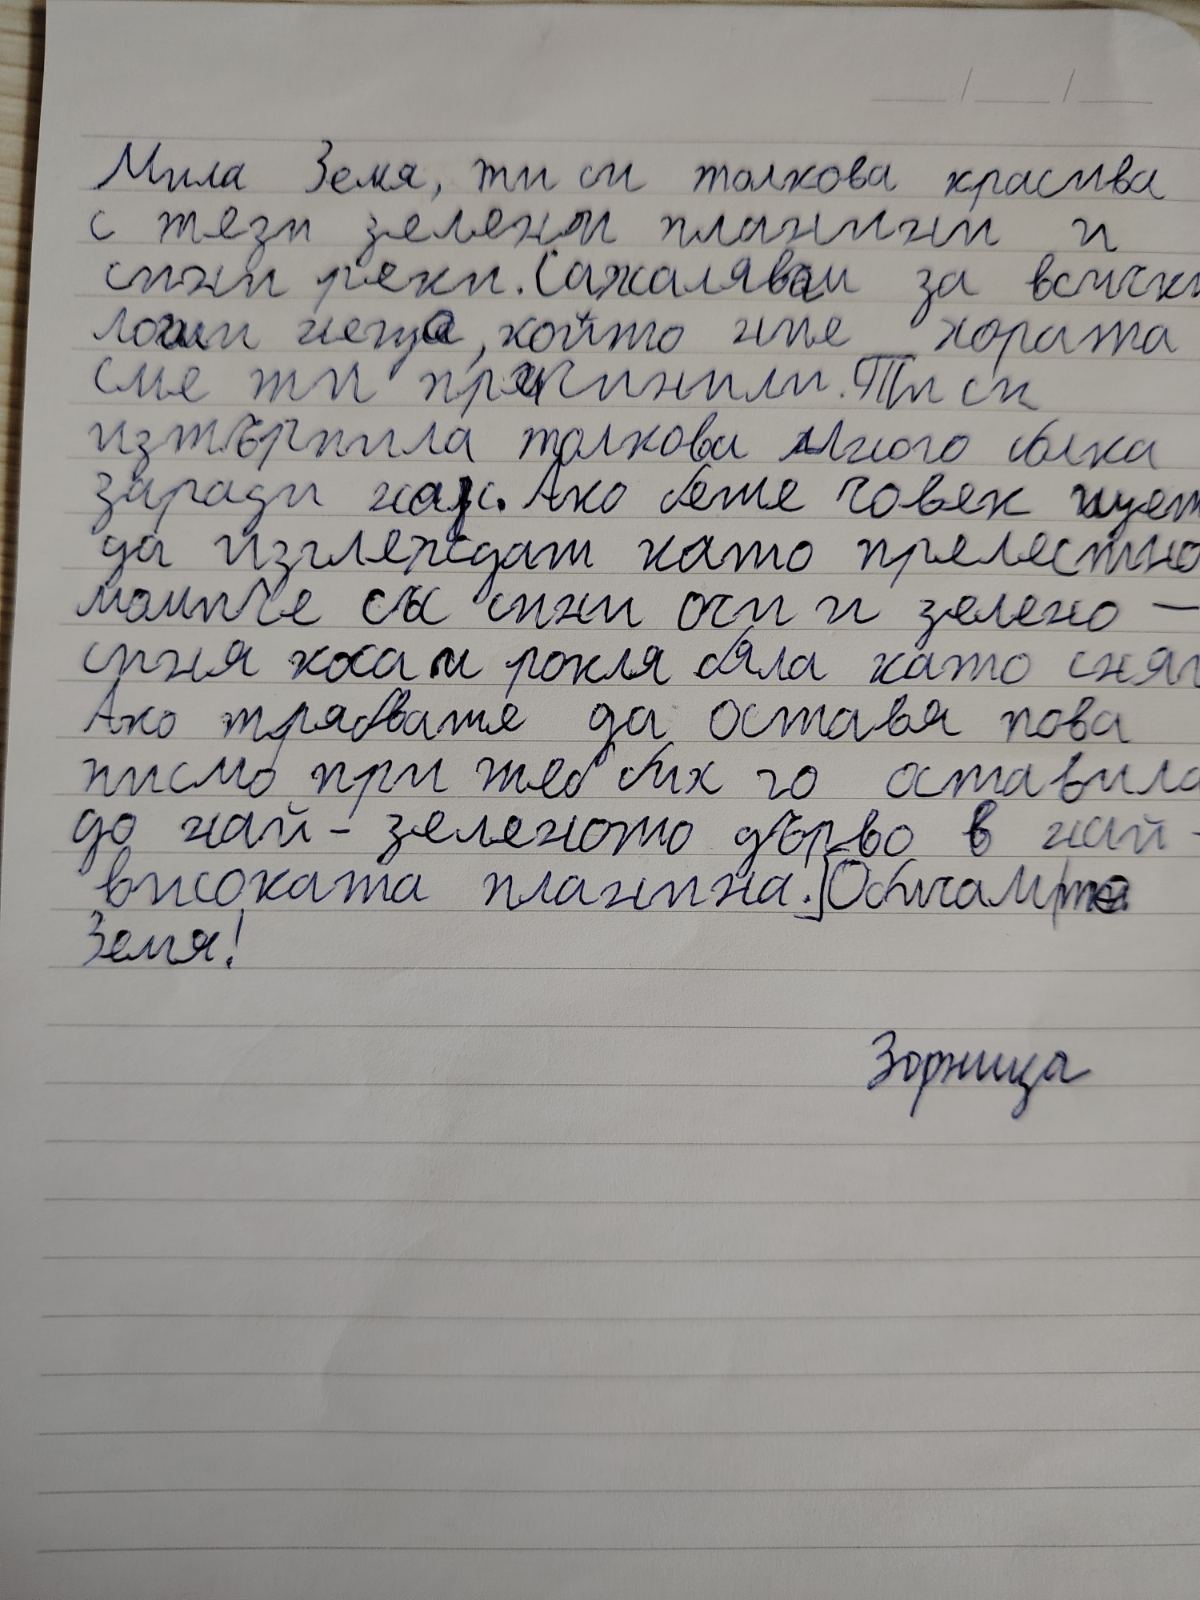 Мила Земя, ти си толкова красива
с тези зелени планини и
сини реки. Сажалявам за всички
лоши неща, който ние хората
сме ти причинили. Ти си
изтърпила толкова много болка
заради нас. Ако беше човек щеше
да изглеждат като прелестно
момиче със сини очи и зелено-
синя коса и рокля бяла като сняг
Ако трябваше да оставя това
писмо при теб бих го оставила
до най-зеленото дърво в най-
високата планина. Обичам те
Земя!
Зорница